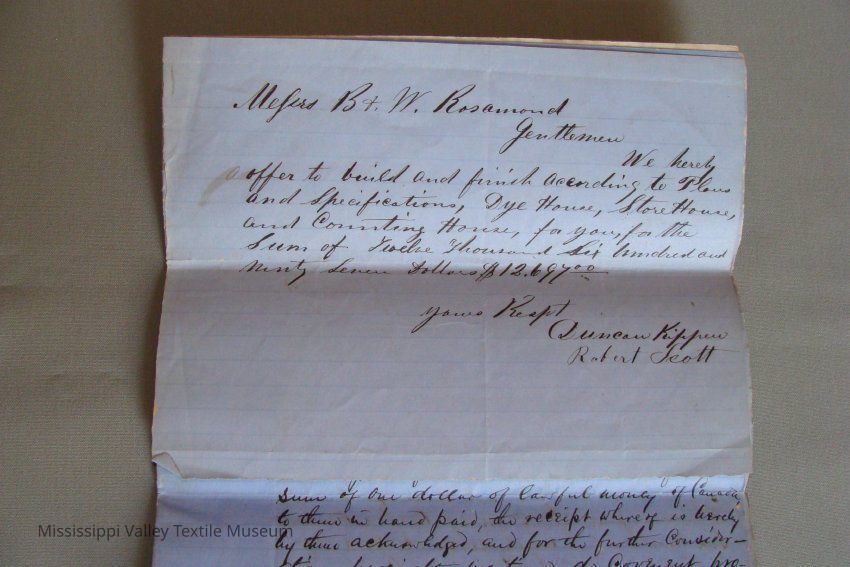 Messrs B & W. Rosamond
Gentlemen
We hereby
offer to build and finish according to Plans
and Specifications, Dye House, Store House,
and Counting House, for you, for the
Sum of Twelve Thousand Six hundred and
ninty Seven Dollars $12,697.00
yours Respt
Duncan Kippen
Robert Scott
Sum of "one" dollar of lawful money of Canada
to them in hand paid, the receipt whereof is hereby
by them acknowledged, and for the further Consider-
Mississippi Valley Textile Museum